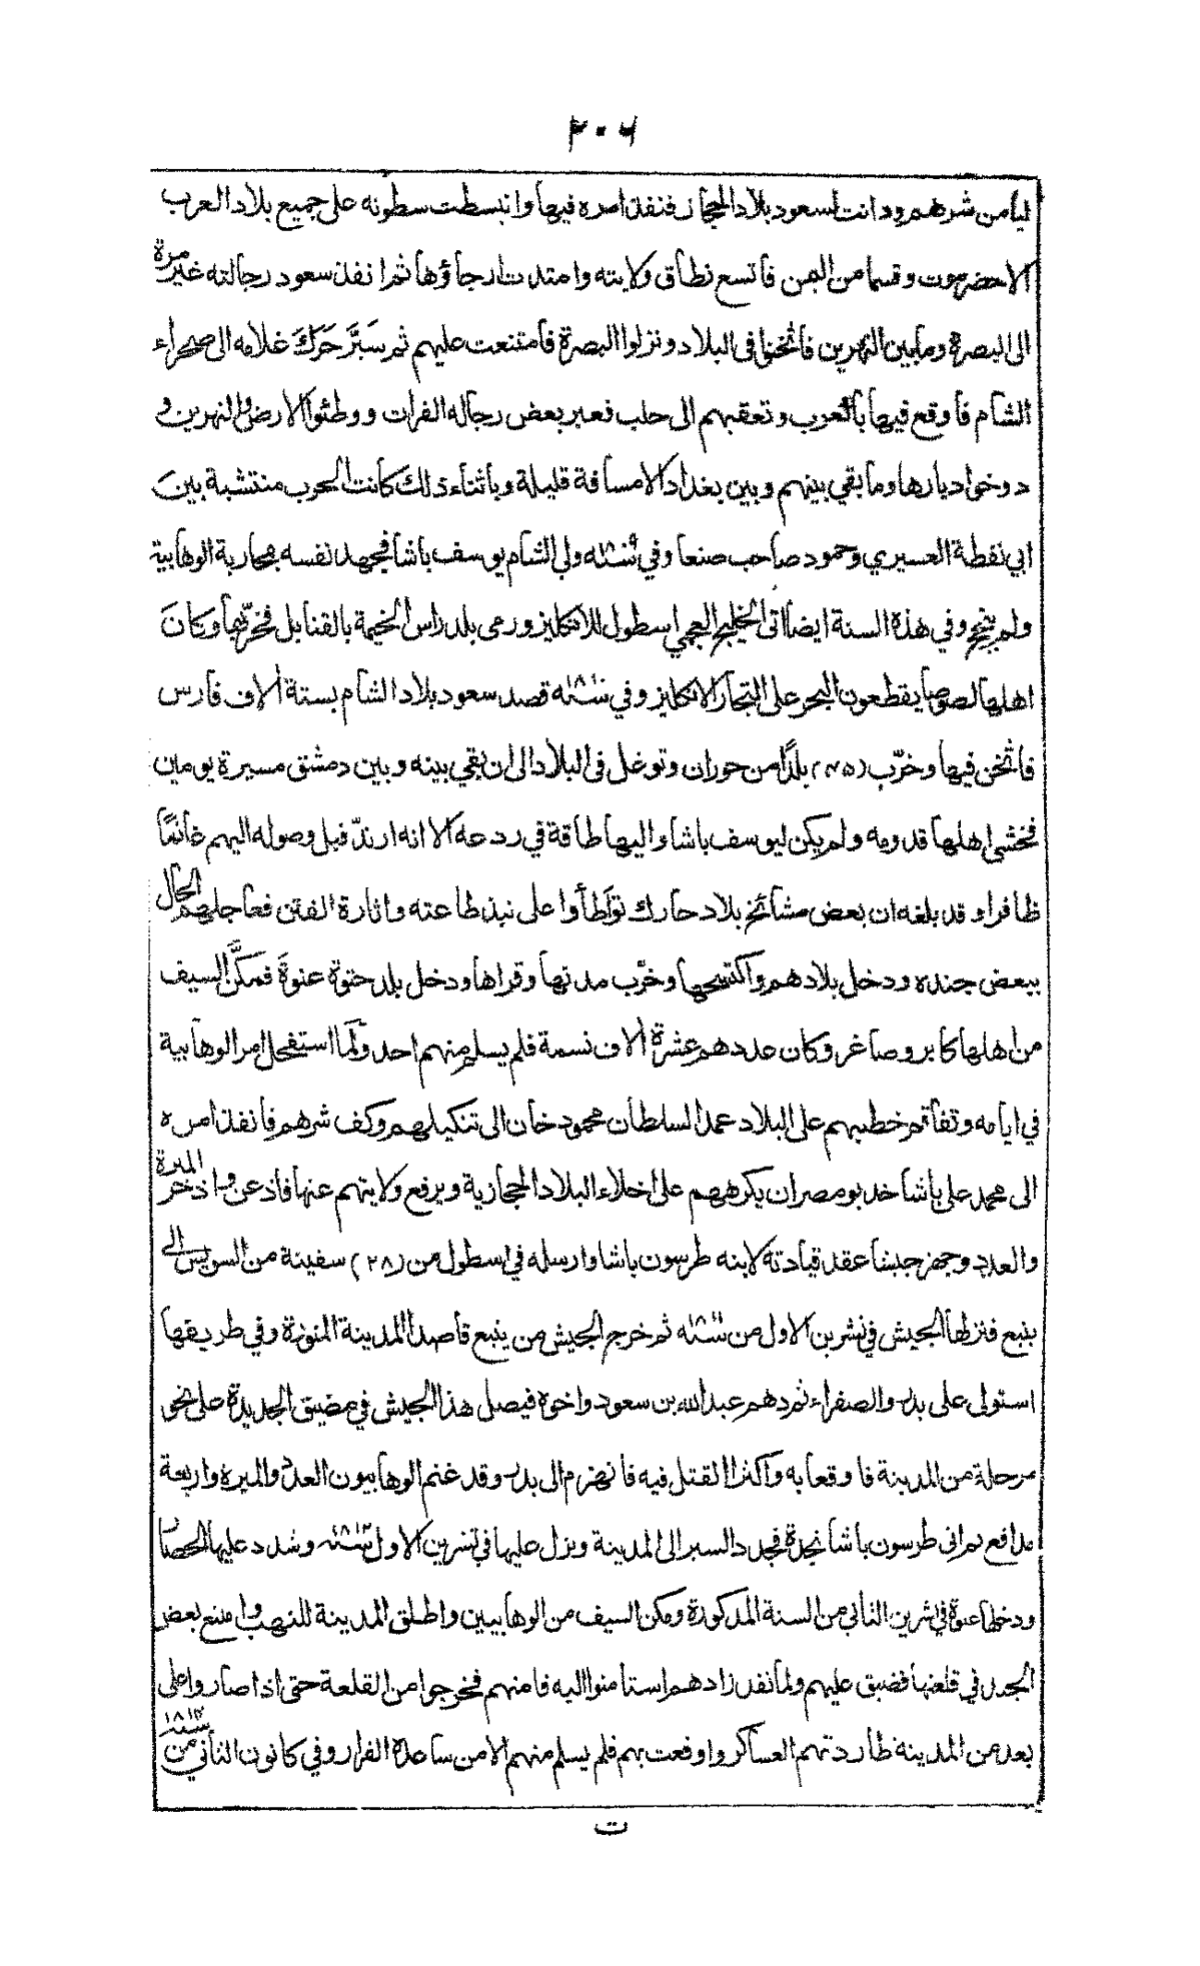 ٢٠٦
ليأمن شرهم ودانت لسعود بلاد الحجاز فنفذ امره فيها وانبسطت سطوته على جميع بلاد العرب
الا حضرموت وقسما من اليمن فاتسع نطاق ولايته وامتدت ارجاؤها ثم انفذ سعود رجالته غير مرة
الى البصرة وما بين النهرين فاثخنوا في البلاد ونزلوا البصرة فامتنعت عليهم ثم سيَّر حرك غلامه الى صحراء
الشام فاوقع فيها بالعرب وتعقبهم الى حلب فعبر بعض رجاله الفرات ووطئوا الارض والنهرين و
دوخوا ديارها وما بقي بينهم وبين بغداد الا مسافة قليلة وباثناء ذلك كانت الحرب منتشبة بين
ابي نقطة العسيري وحمود صاحب صنعا وفي سنة ولي الشام يوسف باشا فجهد نفسه بمحاربة الوهابية
ولم ينجح وفي هذه السنة ايضا اتى الخليج العجمي اسطول للانكليز ورمى بلد راس الخيمة بالقنابل فخرّبها وكان
اهلها لصوصا يقطعون البحر على التجار الانكليز وفي سنة ١٨١٠ قصد سعود بلاد الشام بستة الاف فارس
فاثخن فيها وخرّب (٣٥) بلدًا من حوران وتوغل في البلاد الى ان بقي بينه وبين دمشق مسيرة يومين
فخشي اهلها قدومه ولم يكن ليوسف باشا واليها طاقة في ردعه الا انه ارتدّ قبل وصوله اليهم غانمًا
ظافرا وقد بلغه ان بعض مشائخ بلاد حارك تواطأوا على نبذ طاعته واثارة الفتن فعاجلهم الحال
ببعض جنده ودخل بلادهم واكتسحها وخرّب مدنها وقراها ودخل بلد حتوة عنوةً فمكَّن السيف
من اهلها كابر وصاغر وكان عددهم عشرة الاف نسمة فلم يسلم منهم احد ولمّا استفحل امر الوهابية
في ايامه وتفاقم خطبهم على البلاد عمد السلطان محمود خان الى تنكيلهم وكف شرهم فانفذ امره
الى محمد علي باشا خديو مصر ان يكرههم على اخلاء البلاد الحجازية ويرفع ولايتهم عنها فاذعن واذخر الميرة
والعدد وجهز جيشا عقد قيادته لابنه طرسون باشا وارسله في اسطول من (٢٨) سفينة من السويس الى
ينبع فنزلها الجيش في تشرين الاول من سنة ١٨١١ ثم خرج الجيش من ينبع قاصدا المدينة المنورة وفي طريقها
استولى على بدر والصفراء ثم دهم عبدالله بن سعود واخوه فيصل هذا الجيش في مضيق الجديدة على نحو
مرحلة من المدينة فاوقعا به واكثرا القتل فيه فانهزم الى بدر وقد غنم الوهابيون العدد والميرة واربعة
مدافع ثم اتى طرسون باشا نجدة فجدد السير الى المدينة ونزل عليها في تشرين الاول سنة ١٨١٢ وشدد عليها الحصار
ودخلها عنوة في تشرين الثاني من السنة المذكورة ومكن السيف من الوهابيين واطلق المدينة للنهب وامتنع بعض
الجند في قلعتها فضيق عليهم ولما نفد زادهم استامنوا اليه فامنهم فخرجوا من القلعة حتى اذا صاروا على
بعد من المدينة طاردتهم العساكر واوقعت بهم فلم يسلم منهم الا من ساعده الفرار وفي كانون الثاني من سنة ١٨١٣
ت